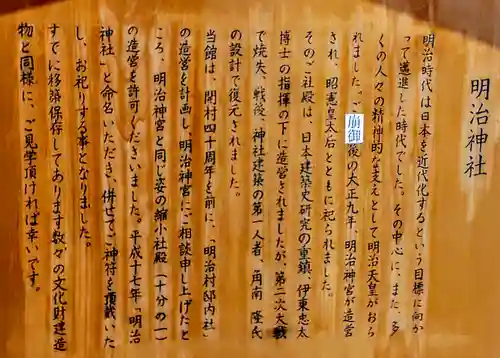 明治神社
明治時代は日本を近代化するという目標に向か
って邁進した時代でした。その中心に、また、多
くの人々の精神的な支えとして明治天皇がおら
れました。ご崩御後の大正九年、明治神宮が造営
され、昭憲皇太后とともに祀られました。
そのご社殿は、日本建築史研究の重鎮、伊東忠太
博士の指揮の下に造営されましたが、第二次大戦
で焼失、戦後、神社建築の第一人者、角南隆氏
の設計で復元されました。
当館は、開村四十周年を前に、「明治村邸内社」
の造営を計画し、明治神宮にご相談申し上げたと
ころ、明治神宮と同じ姿の縮小社殿(十分の一)
の造営を許可くださいました。平成十七年「明治
神社」と命名いただき、併せてご神符を頂戴いた
し、お祀りする事となりました。
すでに移築保存してあります数々の文化財建造
物と同様に、ご見学頂ければ幸いです。